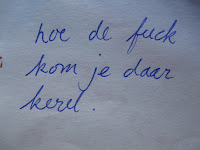 hoe de fuck
kom je daar
kerel.